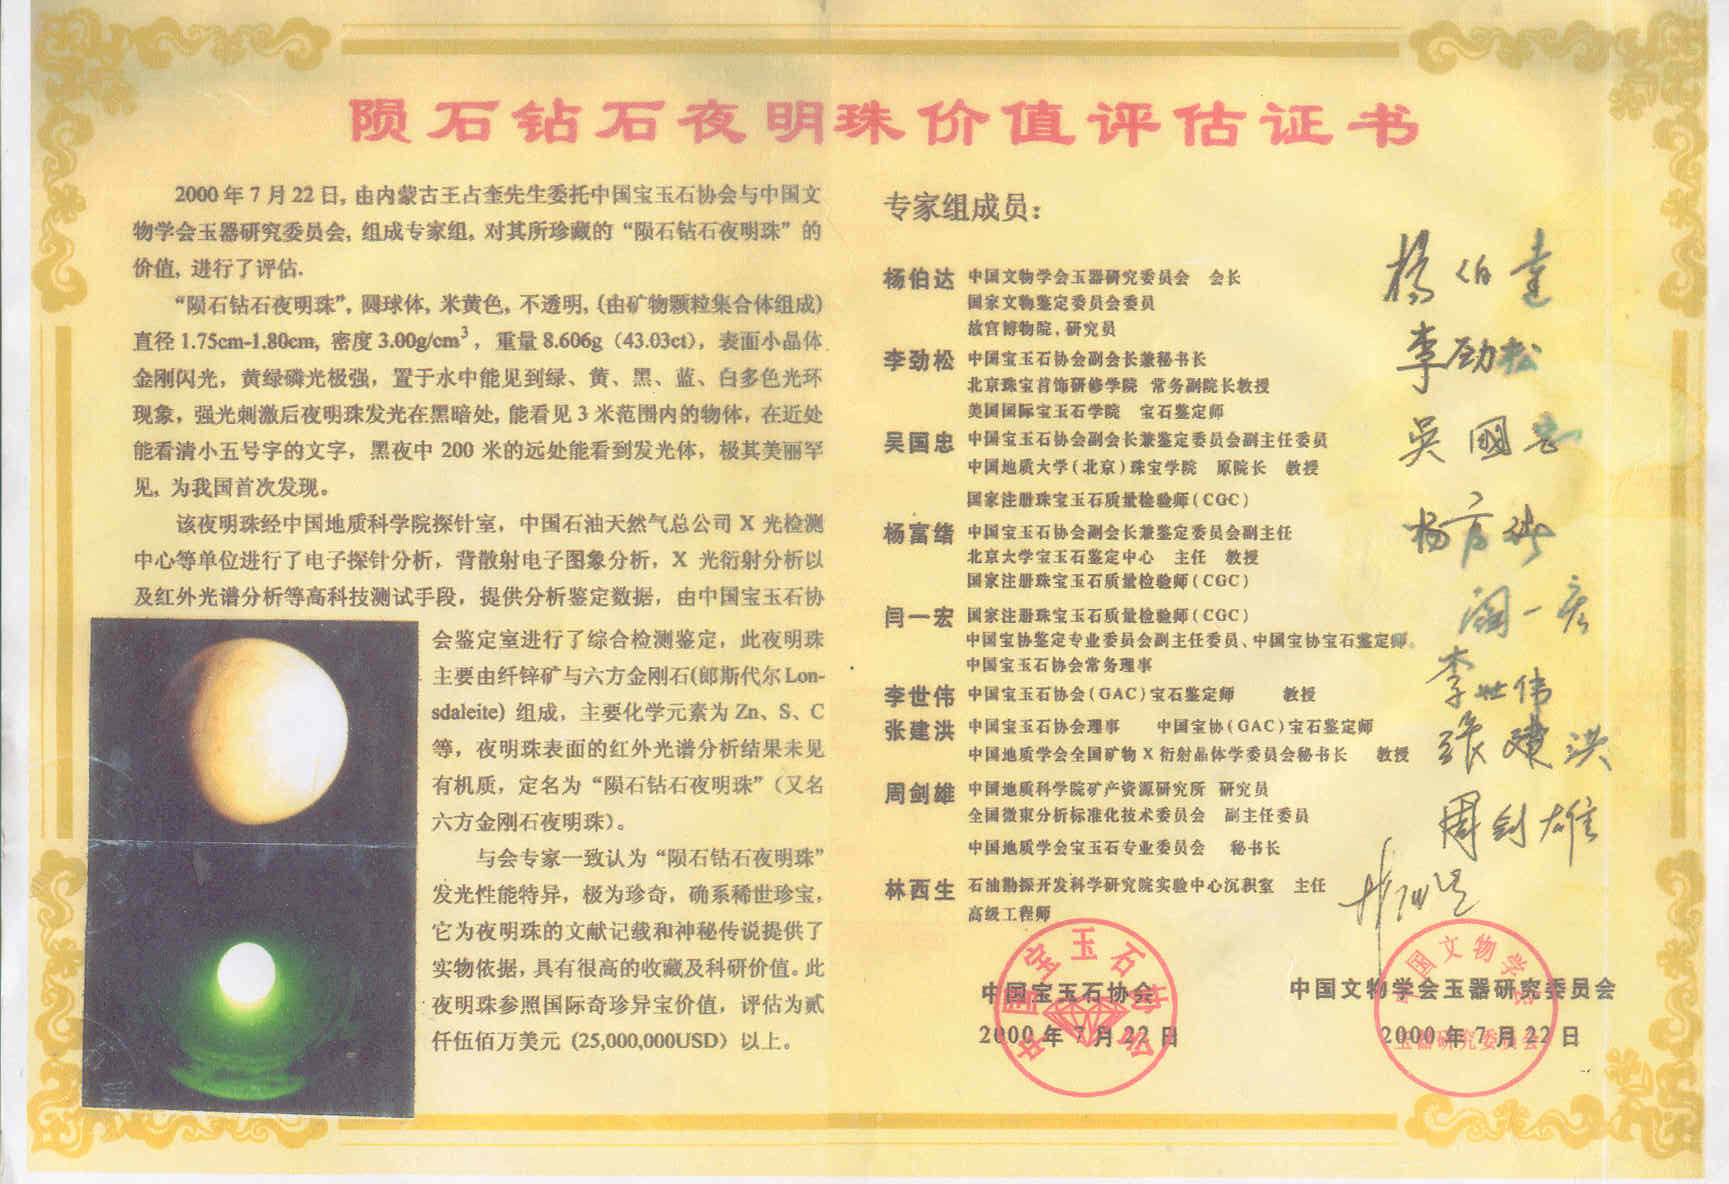 陨石钻石夜明珠价值评估证书
2000 年 7 月 22 日, 由内蒙古王占奎先生委托中国宝玉石协会与中国文
物学会玉器研究委员会, 组成专家组, 对其所珍藏的“陨石钻石夜明珠”的
价值, 进行了评估.
“陨石钻石夜明珠”, 圆球体, 米黄色, 不透明, (由矿物颗粒集合体组成)
直径 1.75cm-1.80cm, 密度 3.00g/cm³ , 重量 8.606g（43.03ct）, 表面小晶体
金刚闪光, 黄绿磷光极强, 置于水中能见到绿、黄、黑、蓝、白多色光环
现象, 强光刺激后夜明珠发光在黑暗处, 能看见 3 米范围内的物体, 在近处
能看清小五号字的文字, 黑夜中 200 米的远处能看到发光体, 极其美丽罕
见, 为我国首次发现。
该夜明珠经中国地质科学院探针室, 中国石油天然气总公司 X 光检测
中心等单位进行了电子探针分析, 背散射电子图象分析, X 光衍射分析以
及红外光谱分析等高科技测试手段, 提供分析鉴定数据, 由中国宝玉石协
会鉴定室进行了综合检测鉴定, 此夜明珠
主要由纤锌矿与六方金刚石(郎斯代尔 Lon-
sdaleite) 组成, 主要化学元素为 Zn、S、C
等, 夜明珠表面的红外光谱分析结果未见
有机质, 定名为“陨石钻石夜明珠”（又名
六方金刚石夜明珠）。
与会专家一致认为“陨石钻石夜明珠”
发光性能特异, 极为珍奇, 确系稀世珍宝,
它为夜明珠的文献记载和神秘传说提供了
实物依据, 具有很高的收藏及科研价值。此
夜明珠参照国际奇珍异宝价值, 评估为贰
仟伍佰万美元 (25,000,000USD）以上。
专家组成员：
杨伯达 中国文物学会玉器研究委员会 会长
国家文物鉴定委员会委员
故宫博物院, 研究员
李劲松 中国宝玉石协会副会长兼秘书长
北京珠宝首饰研修学院 常务副院长教授
美国国际宝玉石学院 宝石鉴定师
吴国忠 中国宝玉石协会副会长兼鉴定委员会副主任委员
中国地质大学(北京)珠宝学院 原院长 教授
国家注册珠宝玉石质量检验师(CGC)
杨富绪 中国宝玉石协会副会长兼鉴定委员会副主任
北京大学宝玉石鉴定中心 主任 教授
国家注册珠宝玉石质量检验师(CGC)
闫一宏 国家注册珠宝玉石质量检验师(CGC)
中国宝协鉴定专业委员会副主任委员、中国宝协宝石鉴定师。
中国宝玉石协会常务理事
李世伟 中国宝玉石协会(GAC)宝石鉴定师 教授
张建洪 中国宝玉石协会理事 中国宝协(GAC)宝石鉴定师
中国地质学会全国矿物 X 衍射晶体学委员会秘书长 教授
周剑雄 中国地质科学院矿产资源研究所 研究员
全国微束分析标准化技术委员会 副主任委员
中国地质学会宝玉石专业委员会 秘书长
林西生 石油勘探开发科学研究院实验中心沉积室 主任
高级工程师
杨伯達
李劲松
吳國忠
杨富绪
阎一宏
李世伟
張建洪
周剑雄
林西生
中国宝玉石协会
2000 年 7 月 22 日
中国宝玉石协会
中国文物学会玉器研究委员会
2000 年 7 月 22 日
中国文物学会
玉器研究委员会